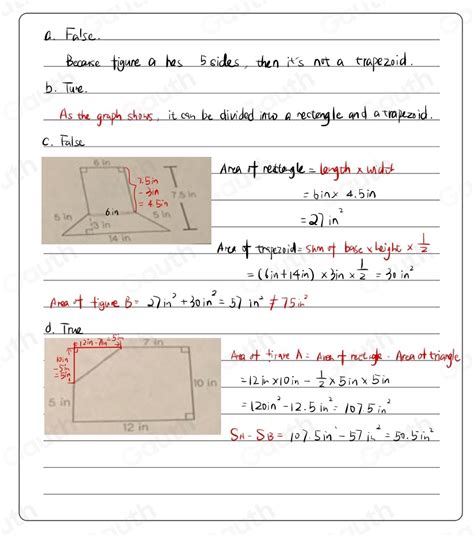 a. False.
Because figure a has 5 sides, then it's not a trapezoid.
b. Ture.
As the graph shows, it can be divided into a rectangle and a trapezoid.
c. False
6 in
7.5in
- 3in
= 4.5in
7.5 in
5 in
6in
5 in
3 in
14 in
Area of rectangle = length × width
= 6in × 4.5in
= 27 in²
Area of trapezoid = sum of base × height × 1/2
= (6in+14in) × 3in × 1/2 = 30 in²
Area of figure B = 27in² + 30in² = 57 in² ≠ 75in²
d. True
12in-7in=5in
7 in
10in
-5in
=5in
10 in
5 in
12 in
Area of figure A = Area of rectangle - Area of triangle
= 12in × 10in - 1/2 × 5in × 5in
= 120in² - 12.5in² = 107.5in²
SA - SB = 107.5in² - 57in² = 50.5in²